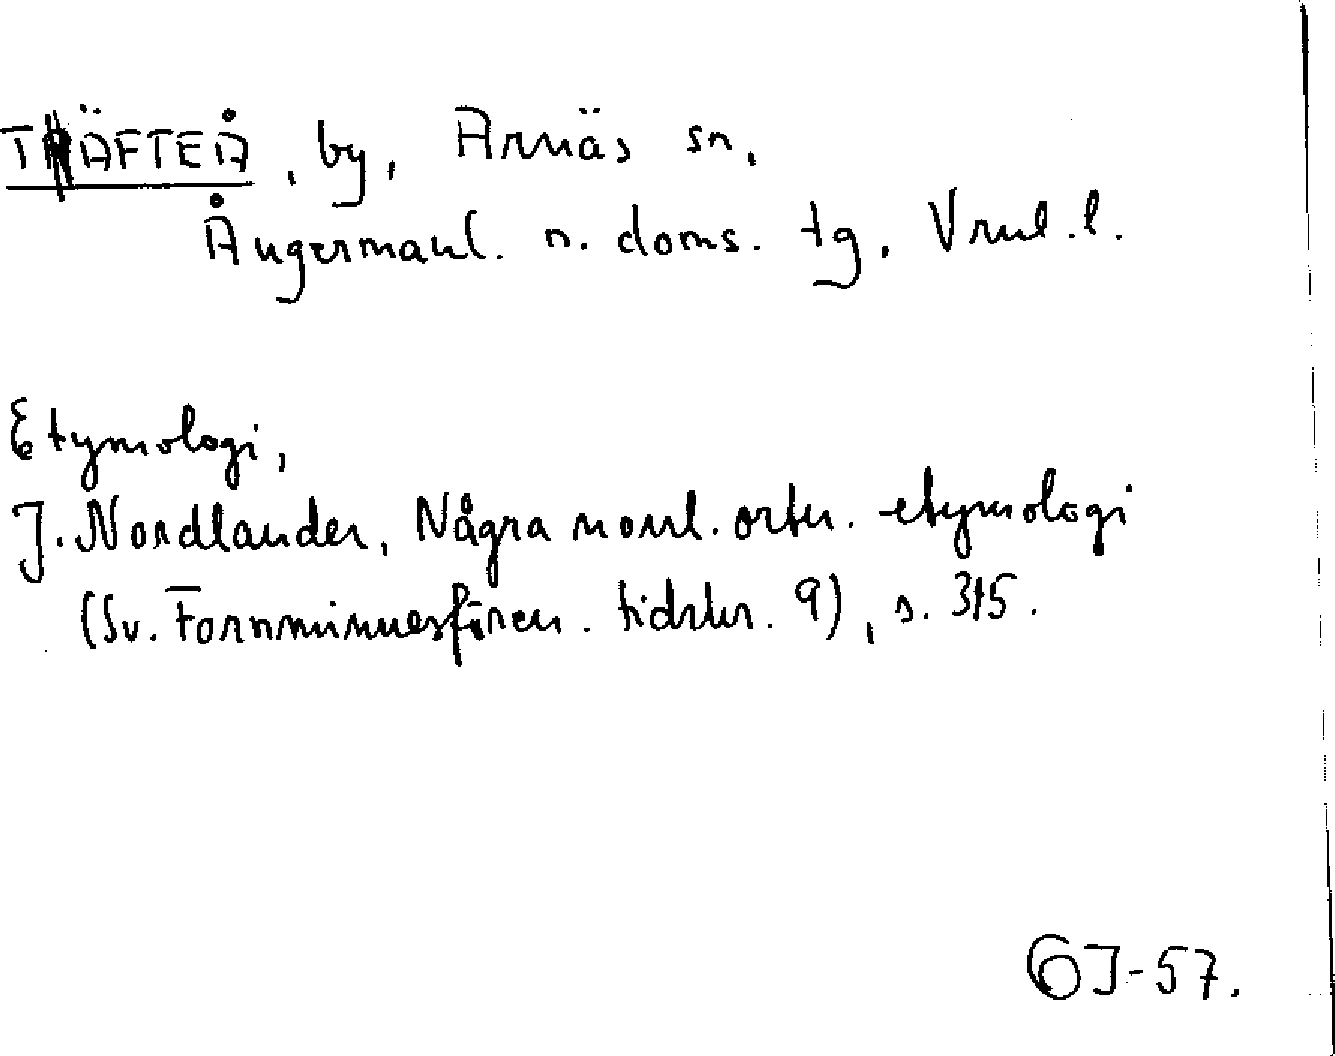 TÄFTEÅ, by, Arnäs sn,
Ångermanl. n. doms. tg, Vnul.l.
Etymologi,
J. Nordlander, Några norrl. ortn. etymologi
(Sv. Fornminnesfören. tidskr. 9), s. 315.
GJ-57.